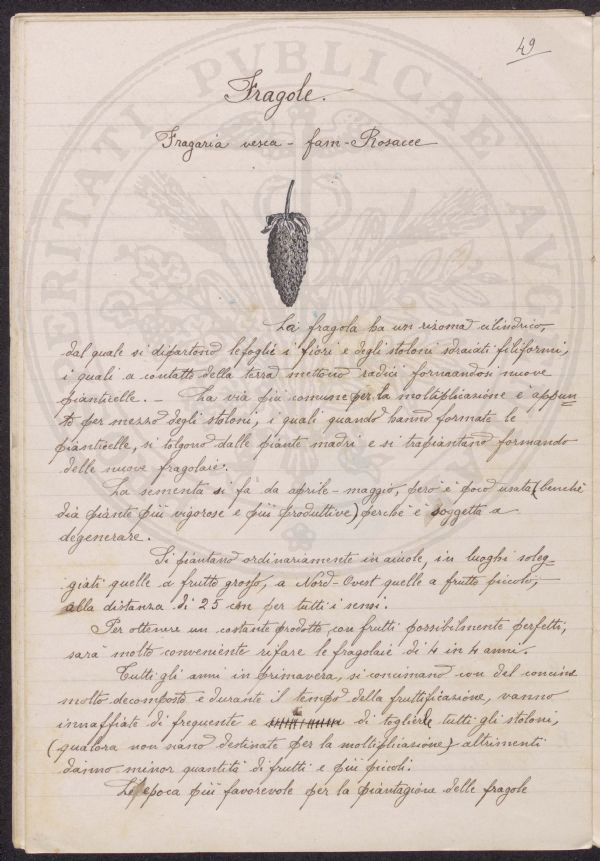 49
Fragole.
Fragaria vesca - fam - Rosacee
La fragola ha un rizoma cilindrico,
dal quale si dipartono le foglie i fiori e degli stoloni sdraiati filiformi,
i quali a contatto della terra mettono radici formandosi nuove
pianticelle. - La via più comune per la moltiplicazione è appun=
to per mezzo degli stoloni, i quali quando hanno formate le
pianticelle, si tolgono dalle piante madri e si trapiantano formando
delle nuove fragolaie.
La sementa si fà da aprile - maggio, però è poco usata (benchè
dia piante più vigorose e più produttive) perchè è soggetta a
degenerare.
Si piantano ordinariamente in aiuole, in luoghi soleg=
giati quelle a frutto grosso, a Nord-Ovest quelle a frutto piccolo,
alla distanza di 25 cm per tutti i sensi.
Per ottenere un costante prodotto, con frutti possibilmente perfetti,
sarà molto conveniente rifare le fragolaie di 4 in 4 anni.
Tutti gli anni in primavera, si concimano con del concime
molto decomposto e durante il tempo della fruttificazione, vanno
innaffiate di frequente e di toglierle tutti gli stoloni,
(qualora non siano destinate per la moltiplicazione) altrimenti
danno minor quantità di frutti e più piccoli.
L'epoca più favorevole per la piantagione delle fragole